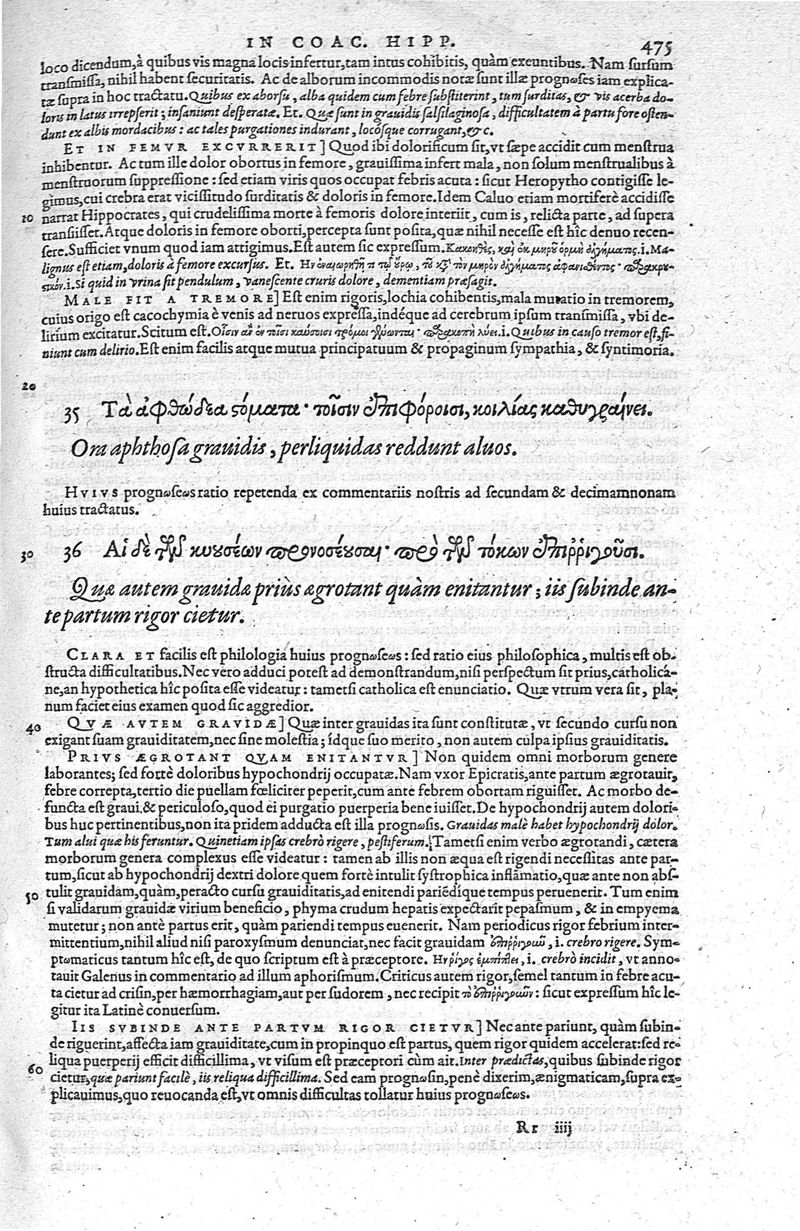 IN COAC. HIPP. 475
loco dicendum, à quibus vis magna locis infertur, tam intus cohibitis, quàm exeuntibus. Nam sursum
transmissa, nihil habent securitatis. Ac de alborum incommodis notæ sunt illæ prognωses iam explica-
tæ supra in hoc tractatu. Quibus ex aborsu, alba quidem cum febre substiterint, tum surditas, & vis acerba do-
loris in latus irrepserit; insaniunt desperatæ. Et. Quæ sunt in grauidis salsilaginosa, difficultatem à partu fore osten-
dunt ex albis mordacibus: ac tales purgationes indurant, locósque corrugant, & c.
ET IN FEMVR EXCVRRERIT] Quod ibi dolorificum sit, vt sæpe accidit cum menstrua
inhibentur. Ac tum ille dolor obortus in femore, grauissima infert mala, non solum menstrualibus à
menstruorum suppressione: sed etiam viris quos occupat febris acuta: sicut Heropytho contigisse le-
gimus, cui crebra erat vicissitudo surditatis & doloris in femore. Idem Caluo etiam mortiferè accidisse
10 narrat Hippocrates, qui crudelissima morte à femoris dolore interiit, cum is, relicta parte, ad supera
transiisset. Atque doloris in femore oborti, percepta sunt posita, quæ nihil necesse est hîc denuo recen-
sere. Sufficiet vnum quod iam attigimus. Est autem sic expressum. Κακοηθὲς, καὶ ἐκ μηροῦ ὁρμὴ ἀλγήματος. i. Ma-
lignus est etiam, doloris à femore excursus. Et.
i. Si quid in vrina sit pendulum, vanescente cruris dolore, dementiam præsagit.
MALE FIT A TREMORE] Est enim rigoris, lochia cohibentis, mala mutatio in tremorem,
cuius origo est cacochymia è venis ad neruos expressa, indéque ad cerebrum ipsum transmissa, vbi de-
lirium excitatur. Scitum est. i. Quibus in causo tremor est, fi-
niunt cum delirio. Est enim facilis atque mutua principatuum & propaginum sympathia, & syntimoria.
20
35 Τὰ ἀφθώδεα στόματα· τοῖσιν ἐπιφόροισι, κοιλίας καθυγραίνει.
Ora aphthosa grauidis, perliquidas reddunt aluos.
HVIVS prognωseωs ratio repetenda ex commentariis nostris ad secundam & decimamnonam
huius tractatus.
30 36 Αἱ δὲ τῶν κυουσέων προνοσέουσαι· πρὸ τῶν τόκων ἐπιῤῥιγοῦσι.
Quæ autem grauidæ priùs ægrotant quàm enitantur; iis subinde an-
te partum rigor cietur.
CLARA ET facilis est philologia huius prognωseωs: sed ratio eius philosophica, multis est ob-
structa difficultatibus. Nec vero adduci potest ad demonstrandum, nisi perspectum sit prius, catholicá-
ne, an hypothetica hîc posita esse videatur: tametsi catholica est enunciatio. Quæ vtrum vera sit, pla-
num faciet eius examen quod sic aggredior.
40 QVÆ AVTEM GRAVIDÆ] Quæ inter grauidas ita sunt constitutæ, vt secundo cursu non
exigant suam grauiditatem, nec sine molestia; ídque suo merito, non autem culpa ipsius grauiditatis.
PRIVS ÆGROTANT QVAM ENITANTVR] Non quidem omni morborum genere
laborantes; sed fortè doloribus hypochondrij occupatæ. Nam vxor Epicratis, ante partum ægrotauit,
febre correpta, tertio die puellam fœliciter peperit, cum ante febrem obortam riguisset. Ac morbo de-
functa est graui, & periculoso, quod ei purgatio puerperia bene iuisset. De hypochondrij autem dolori-
bus huc pertinentibus, non ita pridem adducta est illa prognωsis. Grauidas malè habet hypochondrij dolor.
Tum alui quæ his feruntur. Quinetiam ipsas crebrò rigere, pestiferum. Tametsi enim verbo ægrotandi, cætera
morborum genera complexus esse videatur: tamen ab illis non æqua est rigendi necessitas ante par-
tum, sicut ab hypochondrij dextri dolore quem fortè intulit systrophica inflāmatio, quæ ante non abs-
50 tulit grauidam, quàm, peracto cursu grauiditatis, ad enitendi pariēdíque tempus peruenerit. Tum enim
si validarum grauidæ virium beneficio, phyma crudum hepatis expectarit pepasmum, & in empyema
mutetur; non antè partus erit, quàm pariendi tempus euenerit. Nam periodicus rigor febrium inter-
mittentium, nihil aliud nisi paroxysmum denunciat, nec facit grauidam ἐπιῤῥιγοῦν, i. crebro rigere. Sym-
ptomaticus tantum hîc est, de quo scriptum est à præceptore. Ἢν ῥῖγος ἐμπίπτει, i. crebrò incidit, vt anno-
tauit Galenus in commentario ad illum aphorismum. Criticus autem rigor, semel tantum in febre acu-
ta cietur ad crisin, per hæmorrhagiam, aut per sudorem, nec recipit τὸ ἐπιῤῥιγοῦν: sicut expressum hîc le-
gitur ita Latinè conuersum.
IIS SVBINDE ANTE PARTVM RIGOR CIETVR] Nec ante pariunt, quàm subin-
de riguerint, affecta iam grauiditate, cum in propinquo est partus, quem rigor quidem accelerat: sed re-
liqua puerperij efficit difficillima, vt visum est præceptori cùm ait. Inter prædictas, quibus subinde rigor
60 cietur, quæ pariunt facilè, iis reliqua difficillima. Sed eam prognωsin, penè dixerim, ænigmaticam, supra ex-
plicauimus, quo reuocanda est, vt omnis difficultas tollatur huius prognωseωs.
Rr iiij